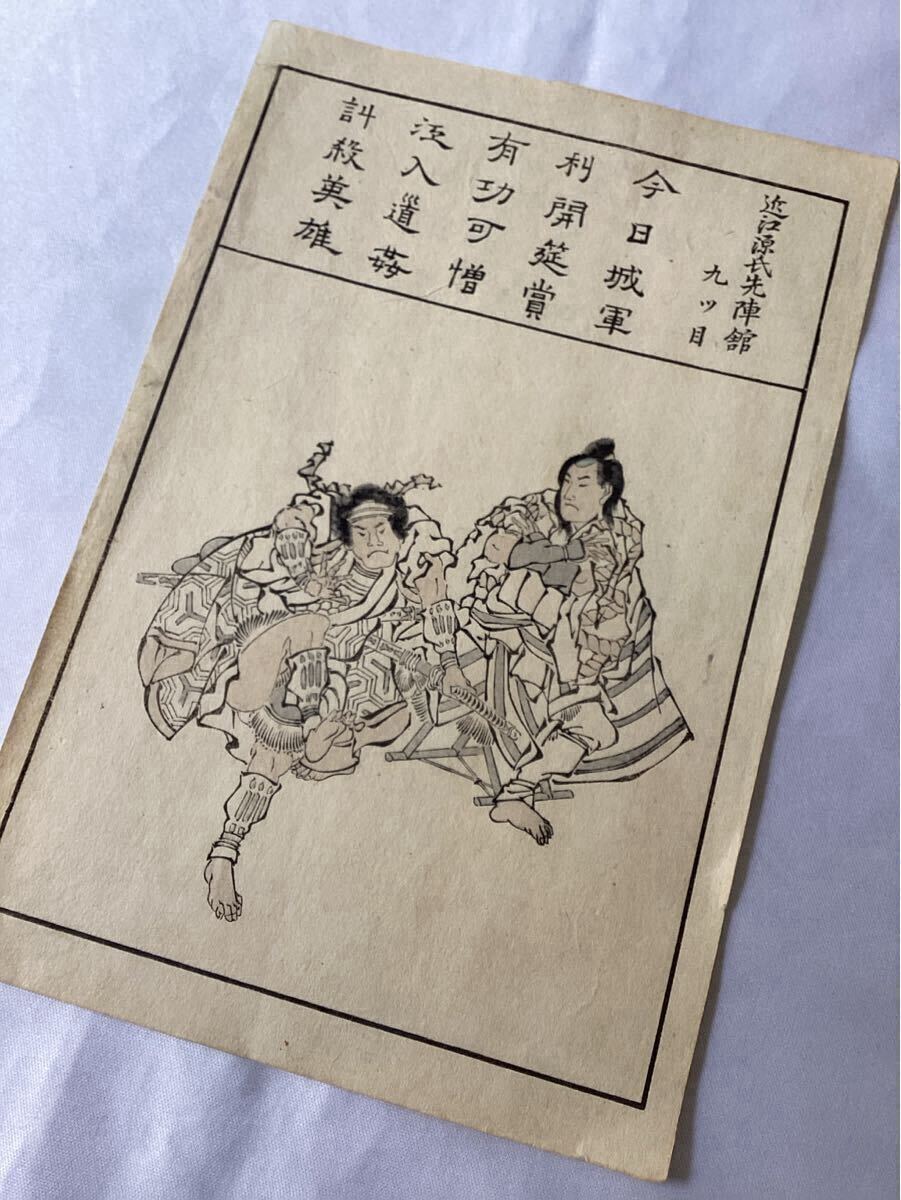 近江源氏先陣舘
九ッ目
今日城軍
利開筵賞
有功可憎
江入道姦
訃殺英雄